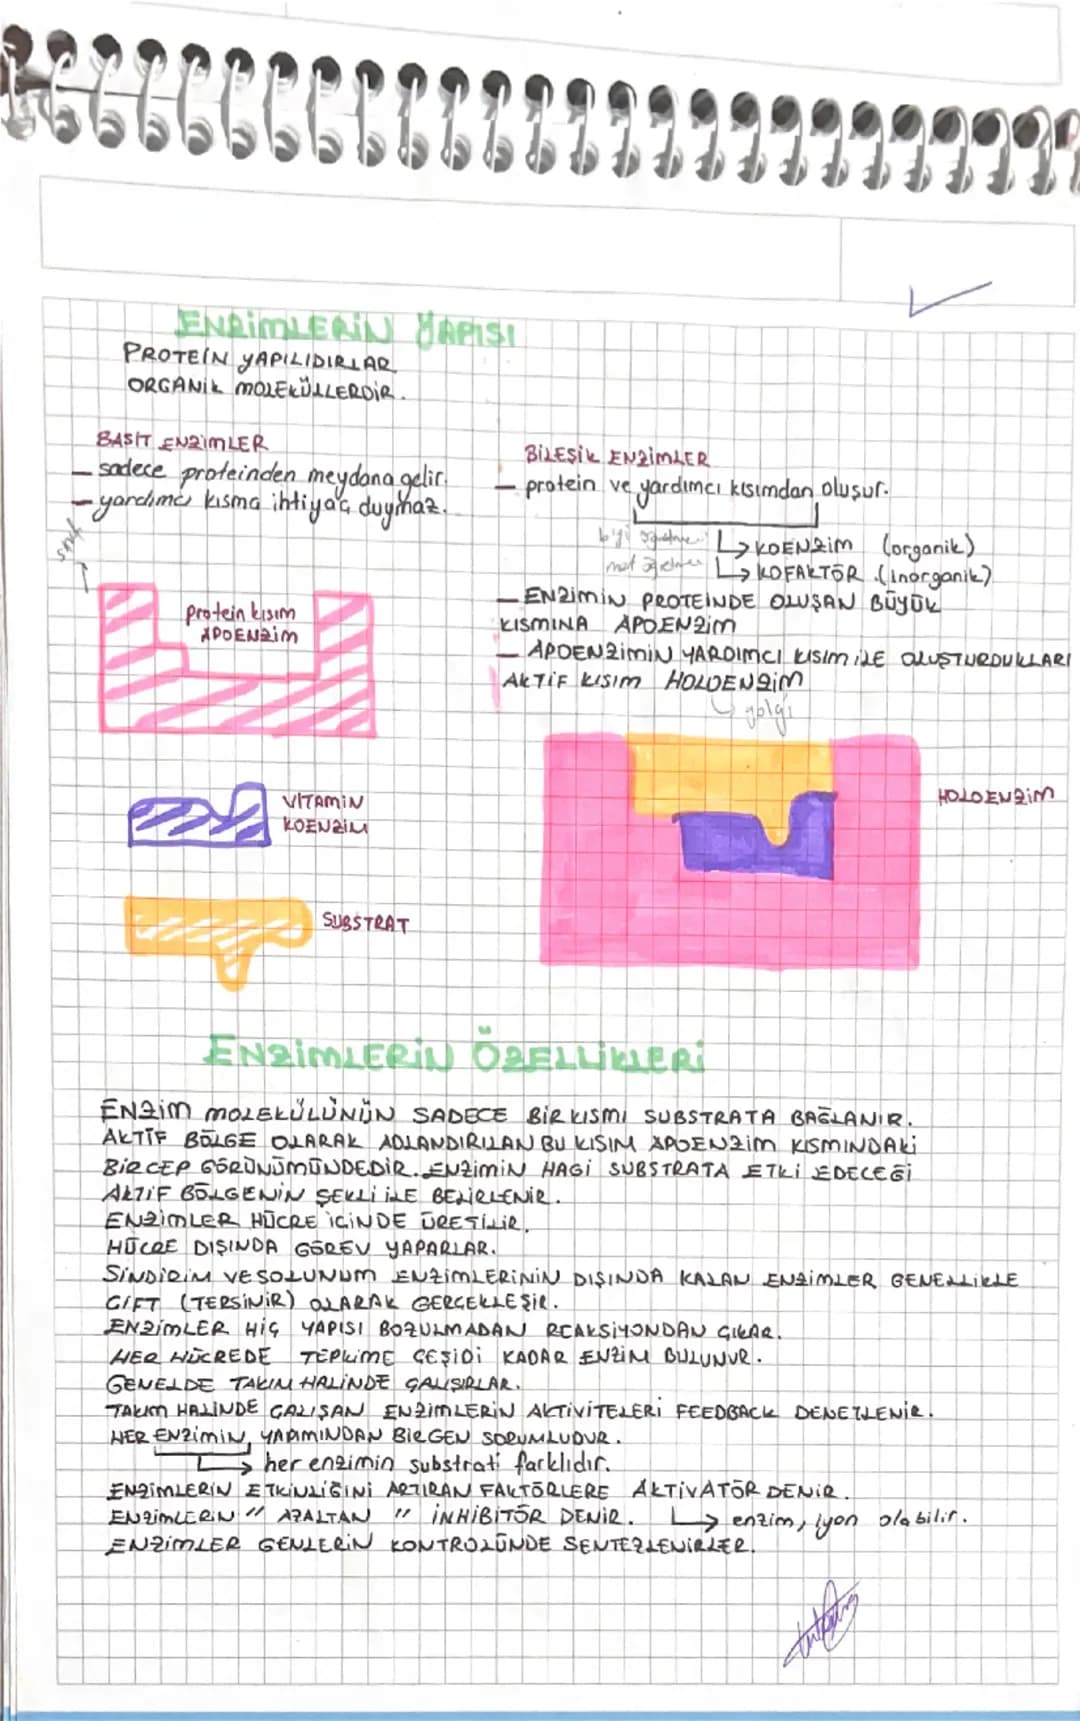 ENZİMLERİN YAPISI
PROTEİN YAPILIDIRLAR
ORGANİK MOLEKÜLLERDİR.
BASİT ENZİMLER
- sadece proteinden meydana gelir.
- yardımcı kısma ihtiyaç duymaz.
sınıf
protein kısım
APOENZİM
VİTAMİN
KOENZİM
SUBSTRAT
BİLEŞİK ENZİMLER
- protein ve yardımcı kısımdan oluşur.
KOENZİM (organik)
KOFAKTÖR (inorganik)
- ENZİMİN PROTEİNDE OLUŞAN BÜYÜK
KISMINA APOENZİM
- APOENZİMİN YARDIMCI KISIM İLE OLUŞTURDUKLARI
AKTİF KISIM HOLOENZİM
golgi
HOLOENZİM
ENZİMLERİN ÖZELLİKLERİ
ENZİM MOLEKÜLÜNÜN SADECE BİR KISMI SUBSTRATA BAĞLANIR.
AKTİF BÖLGE OLARAK ADLANDIRILAN BU KISIM APOENZİM KISMINDAKİ
BİR CEP GÖRÜNÜMÜNDEDİR. ENZİMİN HAGİ SUBSTRATA ETKİ EDECEĞİ
AKTİF BÖLGENİN ŞEKLİ İLE BELİRLENİR.
ENZİMLER HÜCRE İÇİNDE ÜRETİLİR.
HÜCRE DIŞINDA GÖREV YAPARLAR.
SİNDİRİM VE SOLUNUM ENZİMLERİNİN DIŞINDA KALAN ENZİMLER GENELLİKLE
ÇİFT (TERSİNİR) OLARAK GERÇEKLEŞİR.
ENZİMLER HİÇ YAPISI BOZULMADAN REAKSİYONDAN ÇIKAR.
HER HÜCREDE TEPKİME ÇEŞİDİ KADAR ENZİM BULUNUR.
GENELDE TAKIM HALİNDE ÇALIŞIRLAR.
TAKIM HALİNDE ÇALIŞAN ENZİMLERİN AKTİVİTELERİ FEEDBACK DENETLENİR.
HER ENZİMİN YAPIMINDAN BİR GEN SORUMLUDUR.
her enzimin substratı farklıdır.
ENZİMLERİN ETKİNLİĞİNİ ARTIRAN FAKTÖRLERE AKTİVATÖR DENİR.
ENZİMLERİN " AZALTAN " İNHİBİTÖR DENİR. enzim, iyon olabilir.
ENZİMLER GENLERİN KONTROLÜNDE SENTEZLENİRLER.